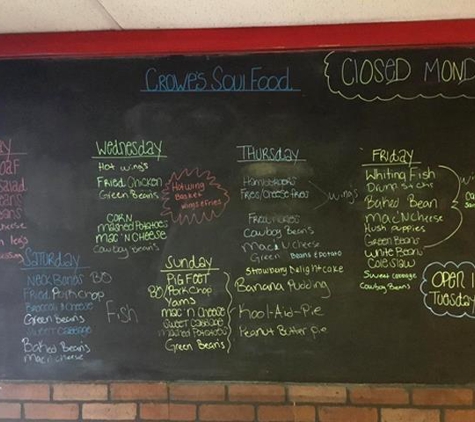 CROWE'S SOUL FOOD
CLOSED MOND
Wednesday
Hot wings
Fried Chicken
Green Beans
CORN
mashed Potatoes
mac 'N Cheese
Cowboy Beans
Hot wing
Basket
wings & fries
THURSDAY
wings
Cowboy Beans
Mac 'N Cheese
Green Beans & Potato
Strawberry Delight cake
Banana Pudding
Kool-Aid-Pie
Peanut Butter pie
FRIDAY
Whiting Fish
Baked Bean
Mac 'N Cheese
Hush puppies
Green Beans
White Beans
Cole Slaw
Sweet Cabbage
Cowboy Beans
OPEN
Tuesday
SATURDAY
Neck Bones BBQ
Fried Pork chop
Broccoli N Cheese
Green beans
Sweet Cabbage
Baked Beans
Mac 'n Cheese
Fish
Sunday
PIG FEET
BBQ Pork Chop
Yams
mac 'n Cheese
Sweet Cabbage
mashed Potatoes
Green Beans